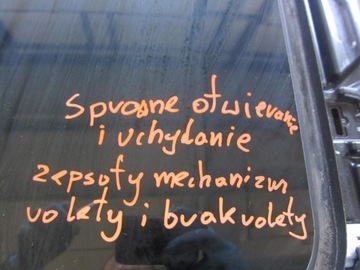 Sprawne otwieranie
i uchylanie
zepsuty mechanizm
rolety i brak rolety